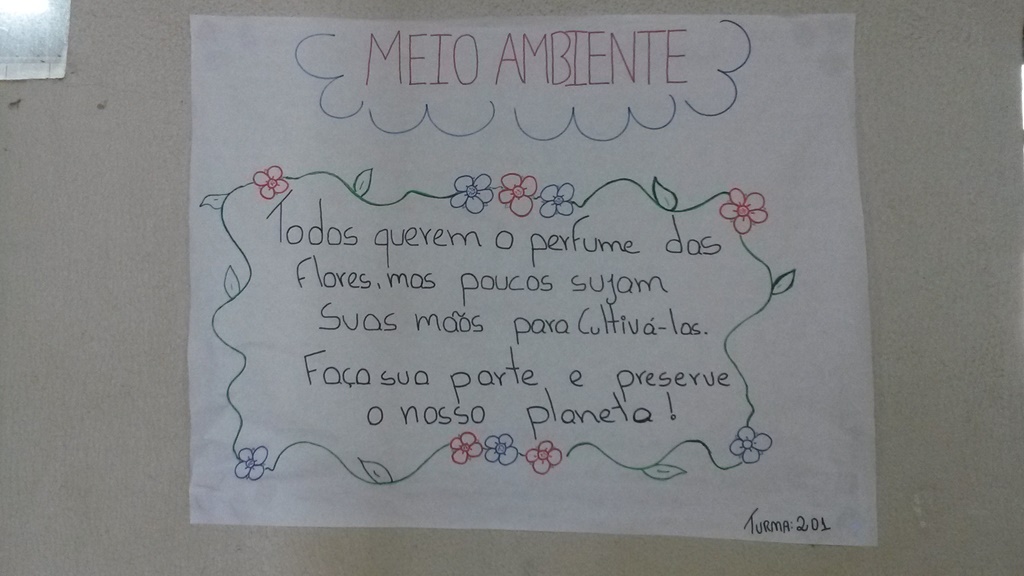 MEIO AMBIENTE
Todos querem o perfume das
flores, mas poucos sujam
Suas mãos para Cultivá-las.
Faça sua parte e preserve
o nosso planeta!
TURMA: 201